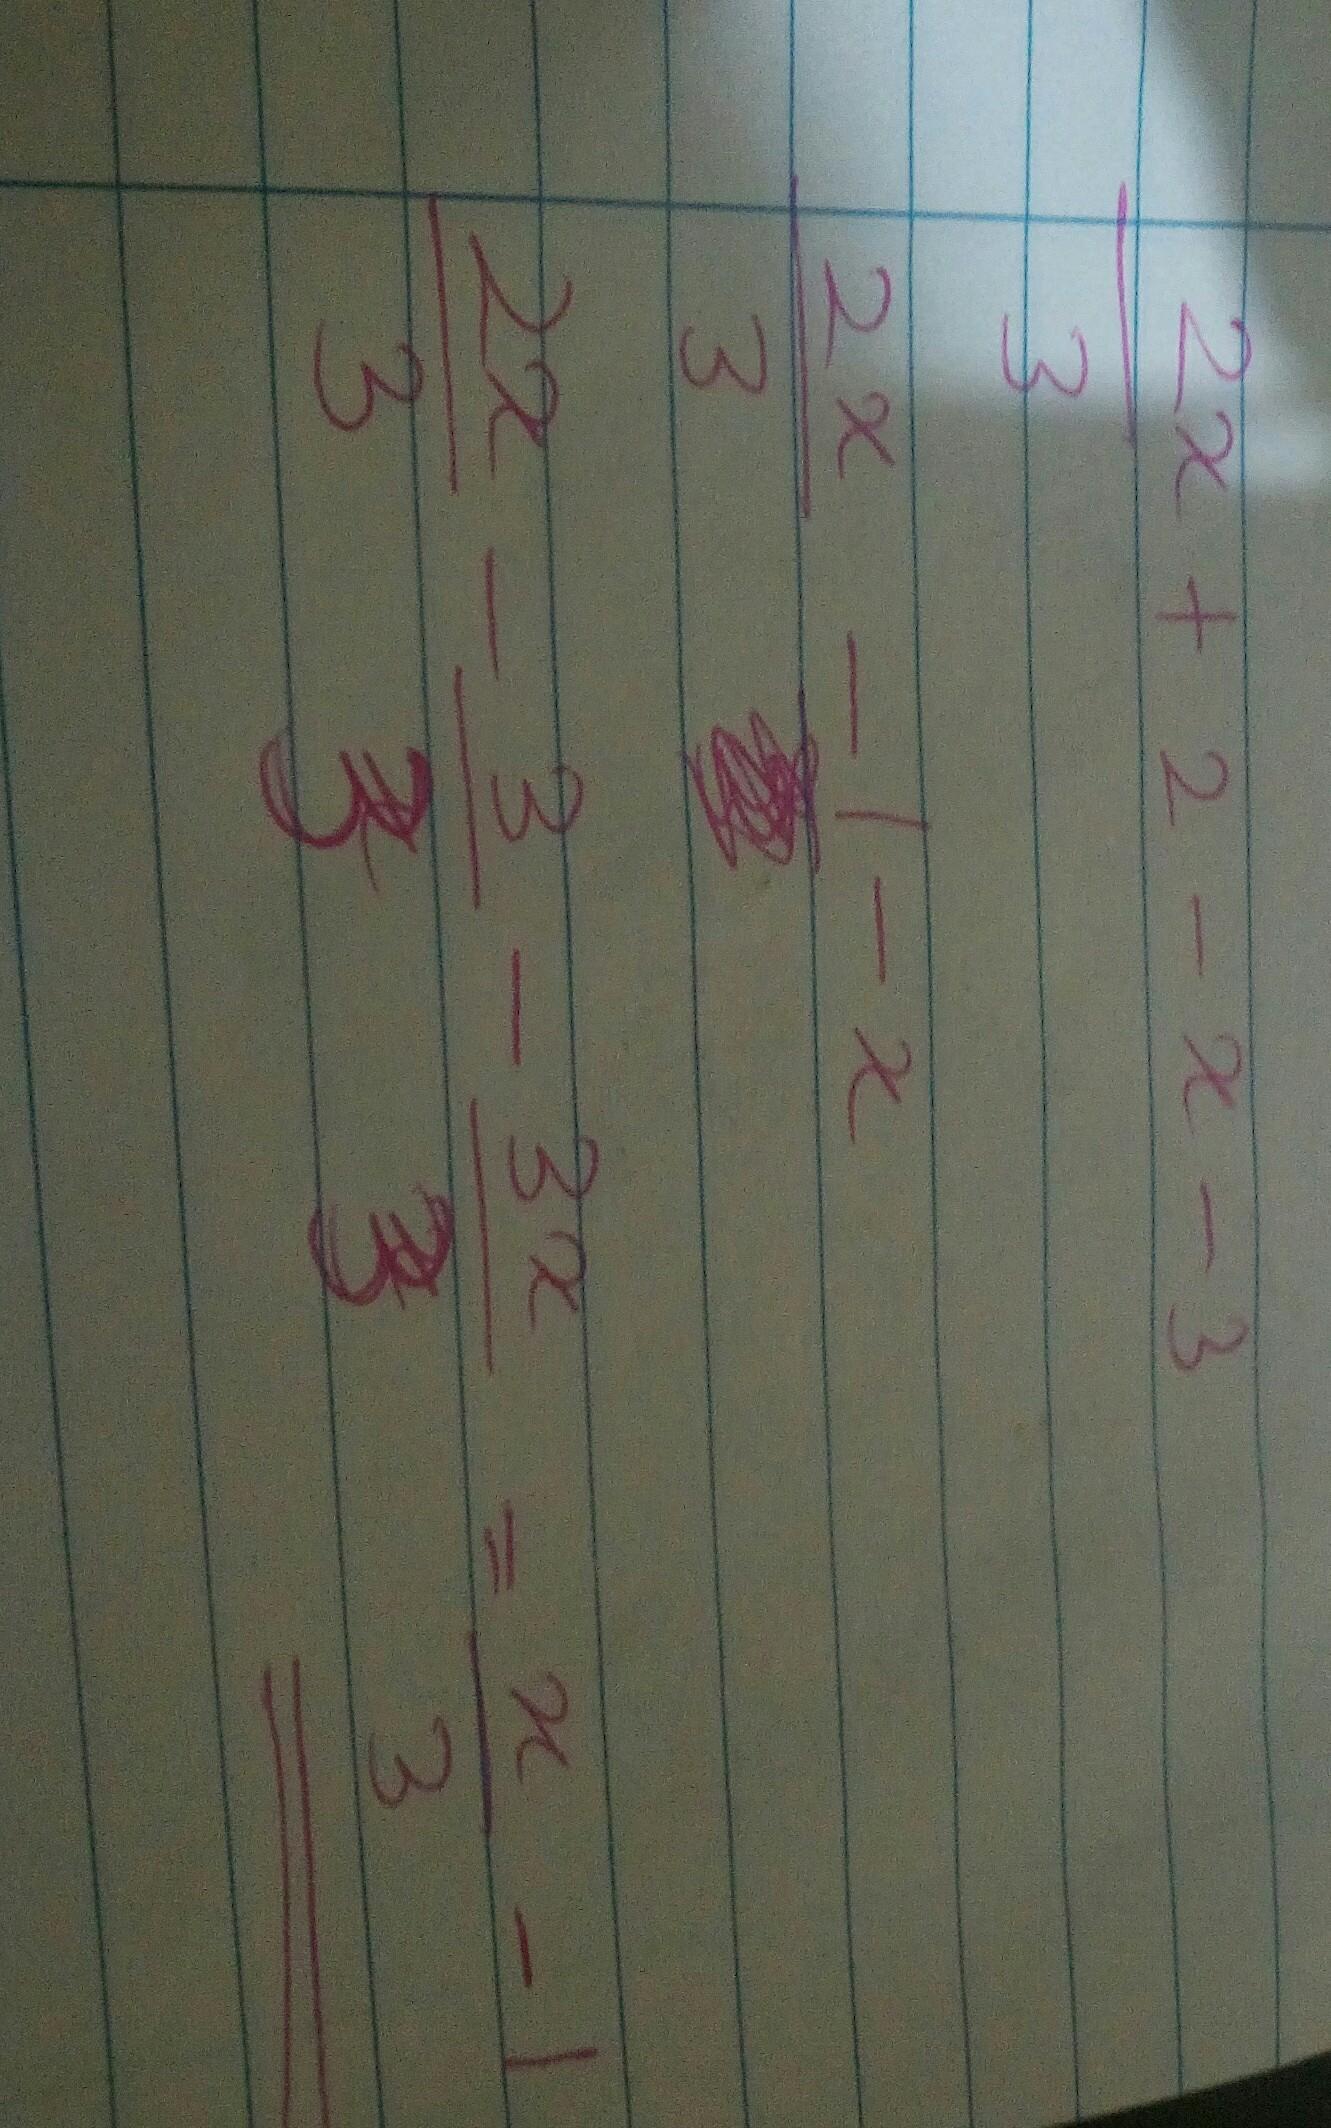 2x/3 + 2 - x - 3
2x/3 - 1 - x
2x/3 - 3/3 - 3x/3 = x/3 - 1